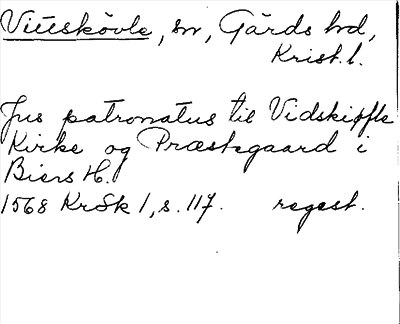 Vittskövle, sn, Gärds hd,
Krist. l.
Jus patronatus til Vidskiøfle
Kirke og Præstegaard i
Biers H.
1568 KrSk 1, s. 117. regest.